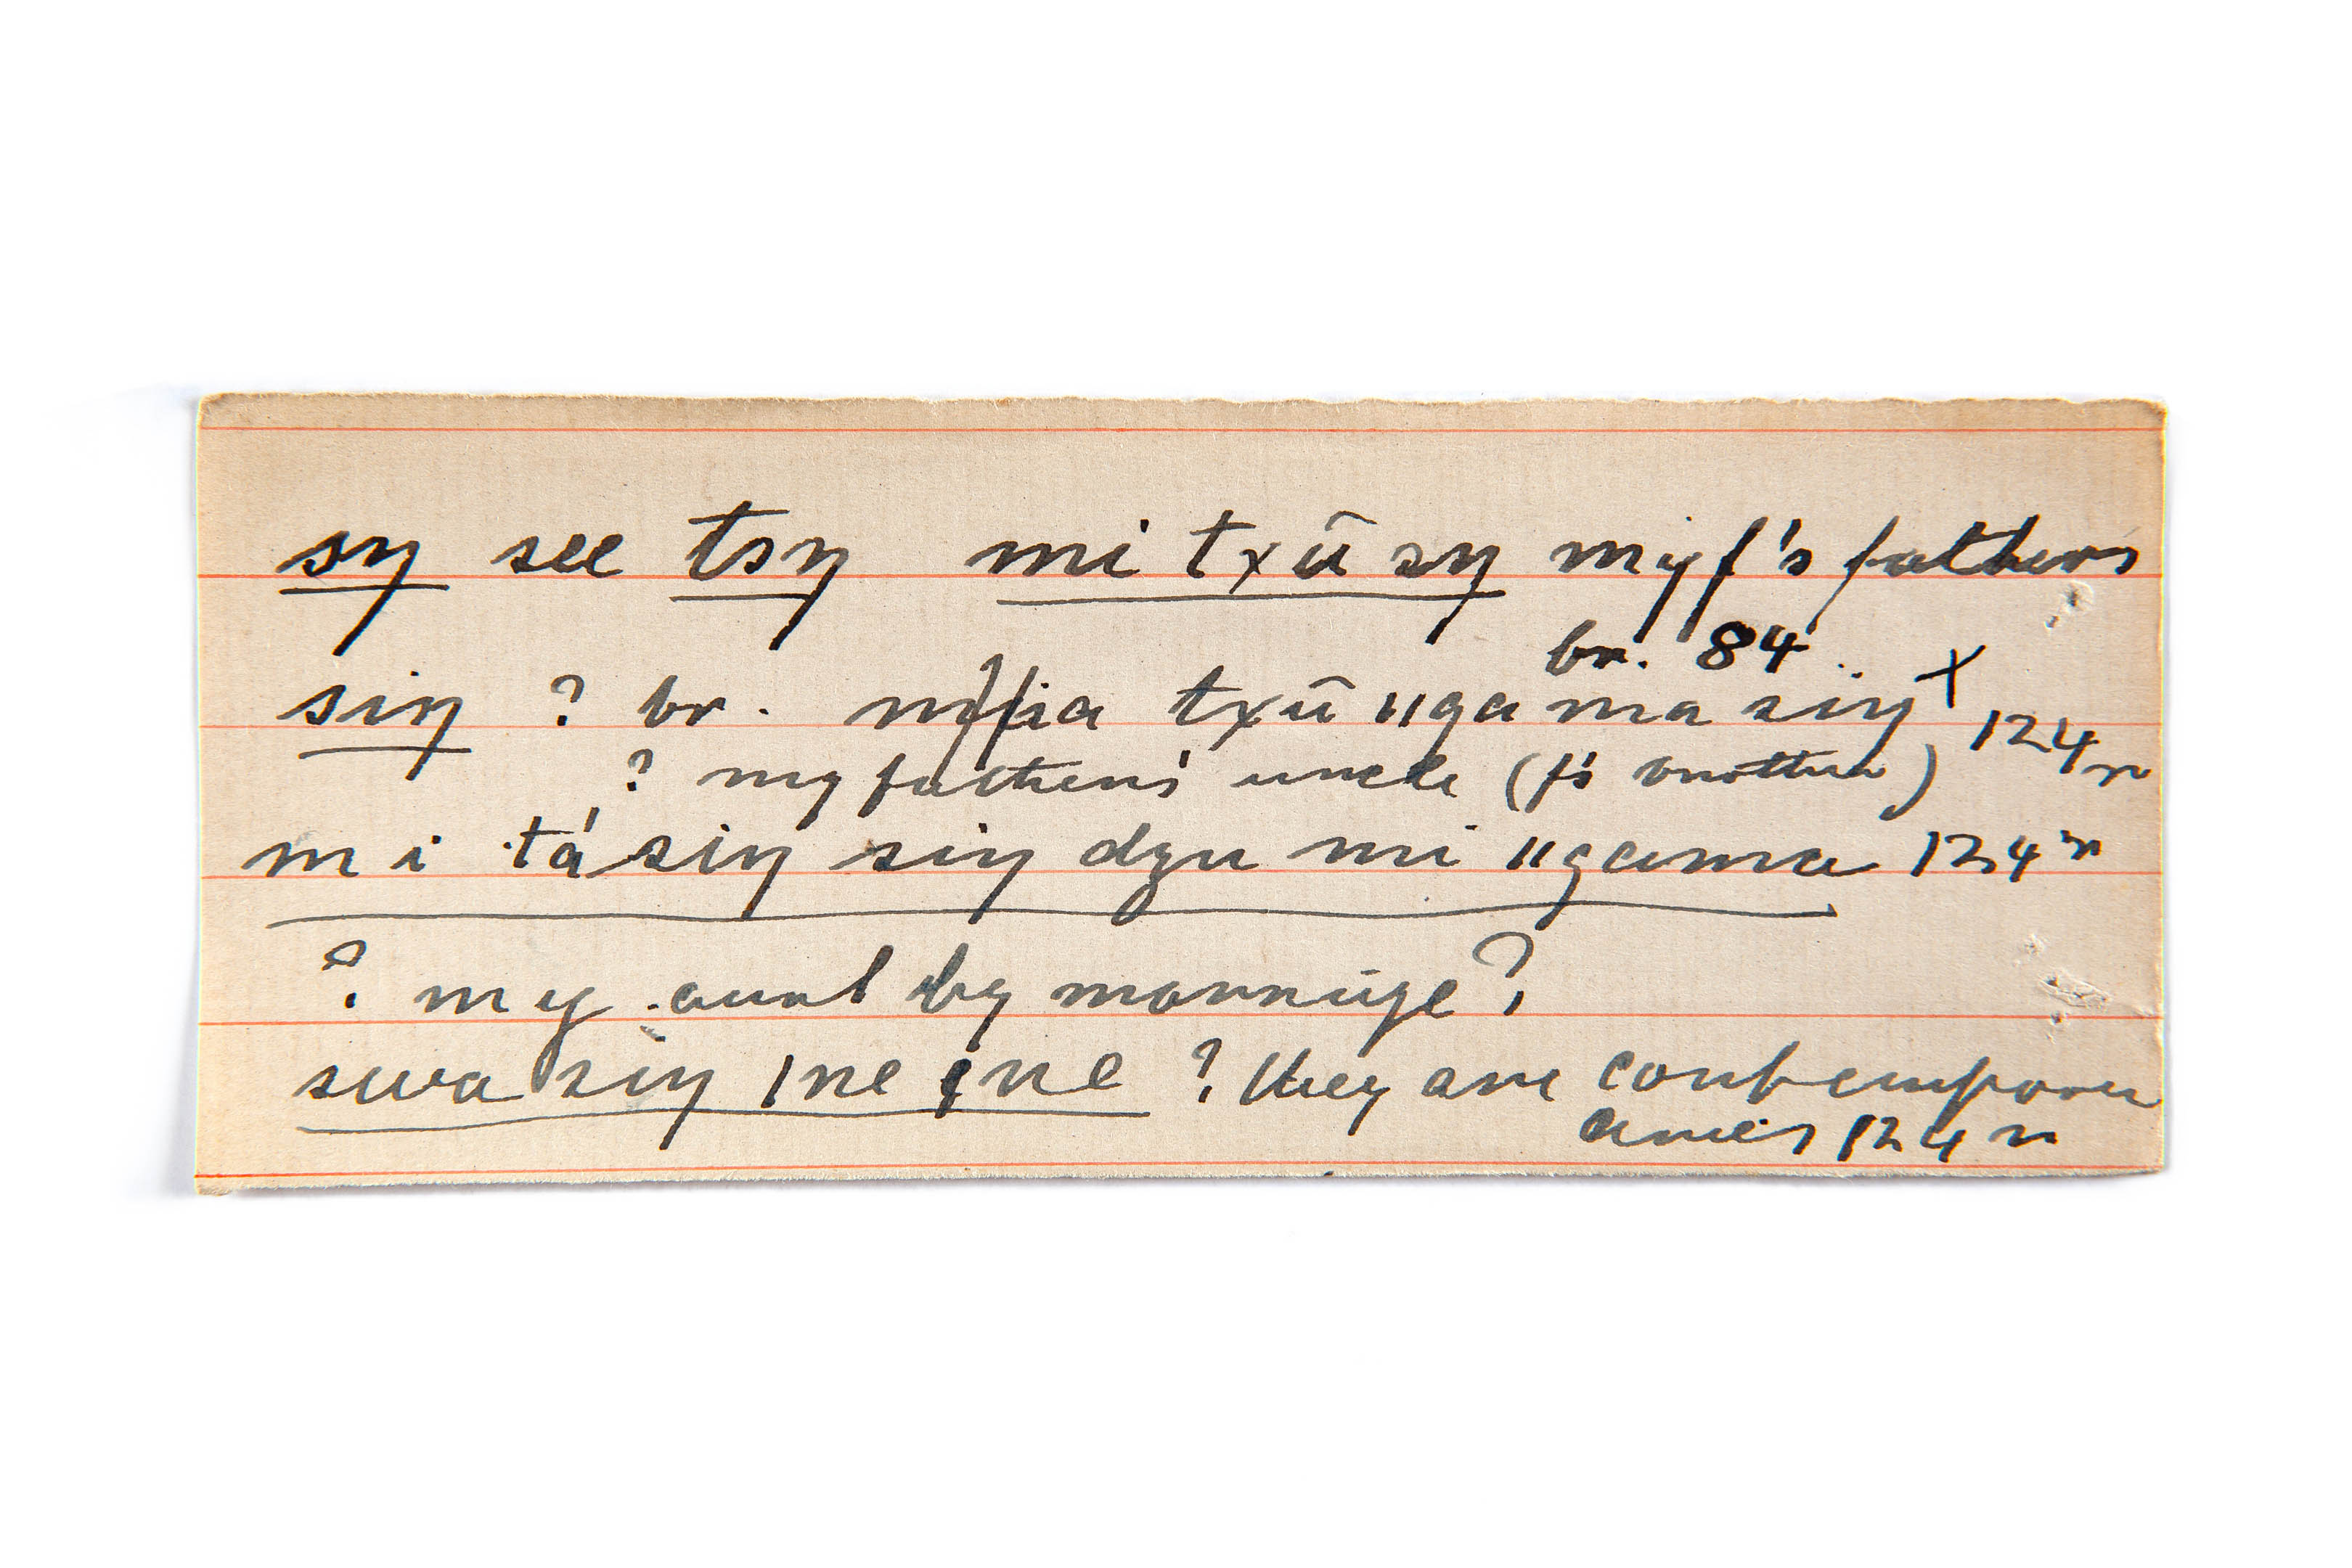 sŋ see tsŋ mi txū sŋ my f's fathers
br. 84.
siŋ ? br. txū ǁga ma siŋ x 124 n
? my father's uncle (f's brother)
mi tá siŋ siŋ dzu mi ǁgama 124 n
? my aunt by marriage?
swa siŋ ǀne ǀne ? they are contempora
aneis 124 n